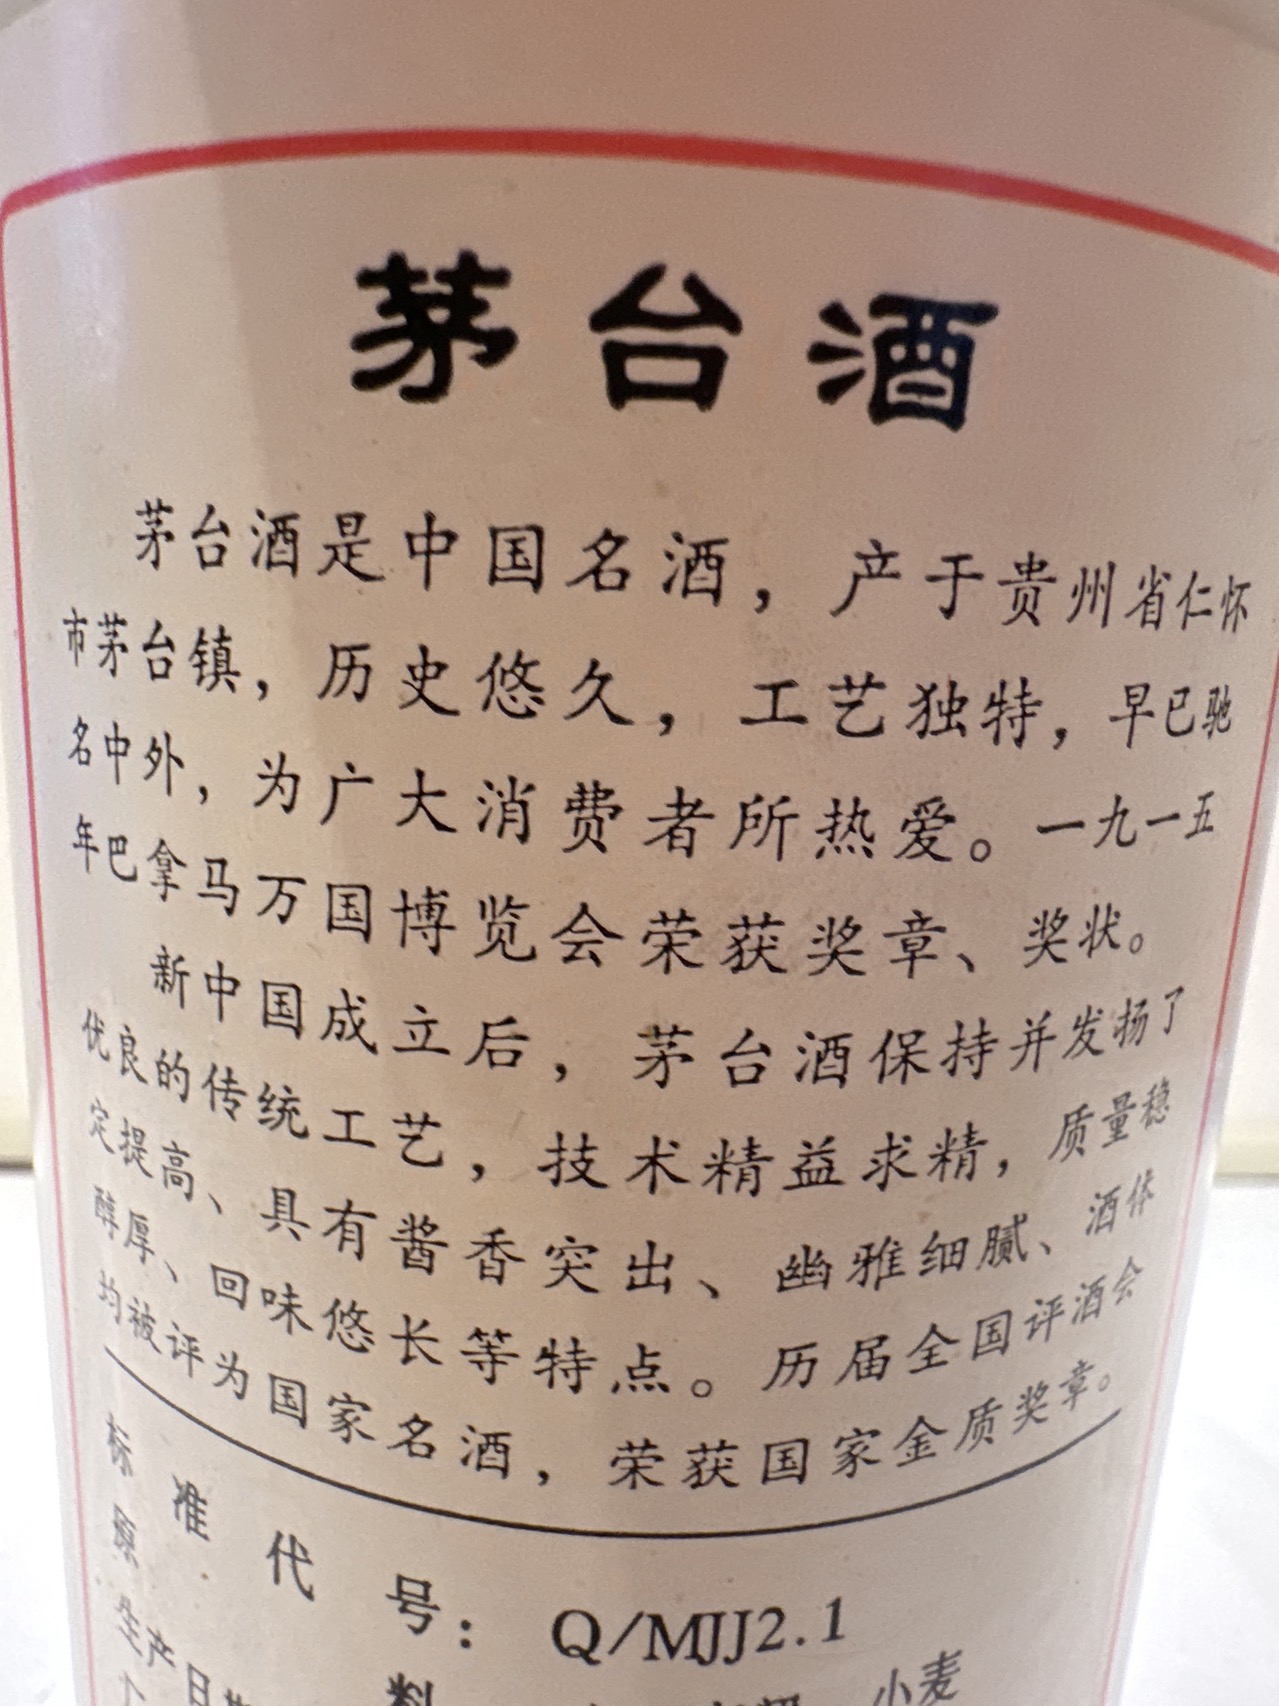 茅台酒
茅台酒是中国名酒，产于贵州省仁怀
市茅台镇，历史悠久，工艺独特，早已驰
名中外，为广大消费者所热爱。一九一五
年巴拿马万国博览会荣获奖章、奖状。
新中国成立后，茅台酒保持并发扬了
优良的传统工艺，技术精益求精，质量稳
定提高、具有酱香突出、幽雅细腻、酒体
醇厚、回味悠长等特点。历届全国评酒会
均被评为国家名酒，荣获国家金质奖章。
标准代号：Q/MJJ2.1
原料 小麦
生产日期